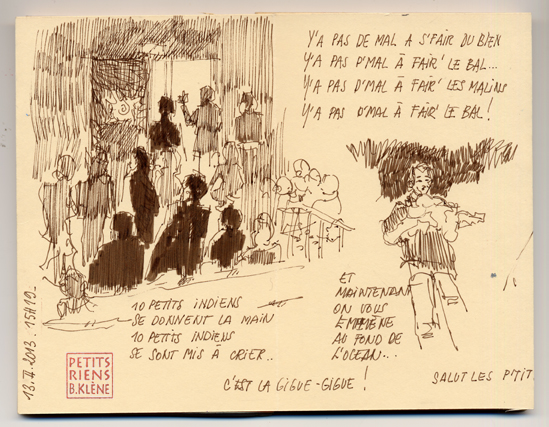 Y'A PAS DE MAL A S'FAIR' DU BIEN
Y'A PAS D'MAL À FAIR' LE BAL...
Y'A PAS D'MAL À FAIR' LES MALINS
Y'A PAS D'MAL À FAIR' LE BAL!
ET
MAINTENANT
ON VOUS
EMMÈNE
AU FOND DE
L'OCEAN...
10 PETITS INDIENS
SE DONNENT LA MAIN
10 PETITS INDIENS
SE SONT MIS À CRIER..
C'EST LA GIGUE-GIGUE!
SALUT LES P'TIT
2013. 15H19_
PETITS
RIENS
B.KLÈNE